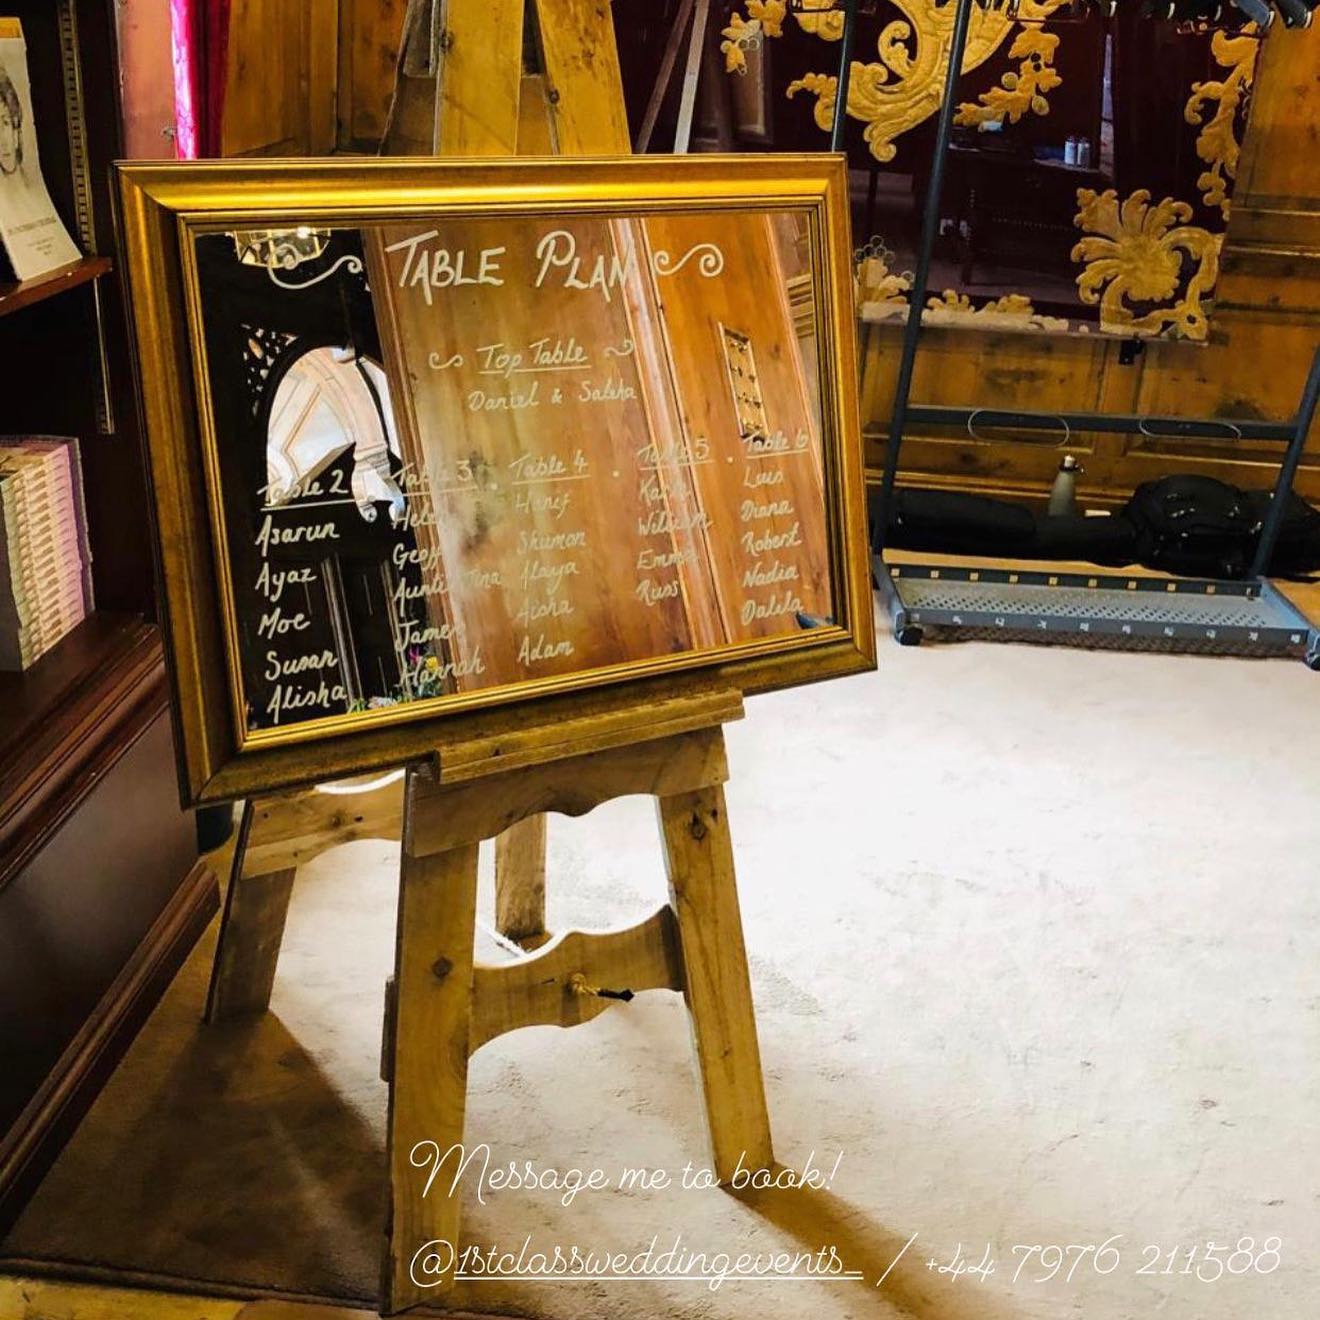 TABLE PLAN
Top Table
Daniel & Saleha
Table 2
Asarun
Ayaz
Moe
Susan
Alisha
Table 3
Geoff
Auntie Tina
James
Hannah
Table 4
Hanef
Shumon
Alaya
Aisha
Adam
Table 5
William
Emma
Russ
Table 6
Luis
Diana
Robert
Nadia
Dalila
Message me to book!
@1stclassweddingevents_ / +44 7976 211588